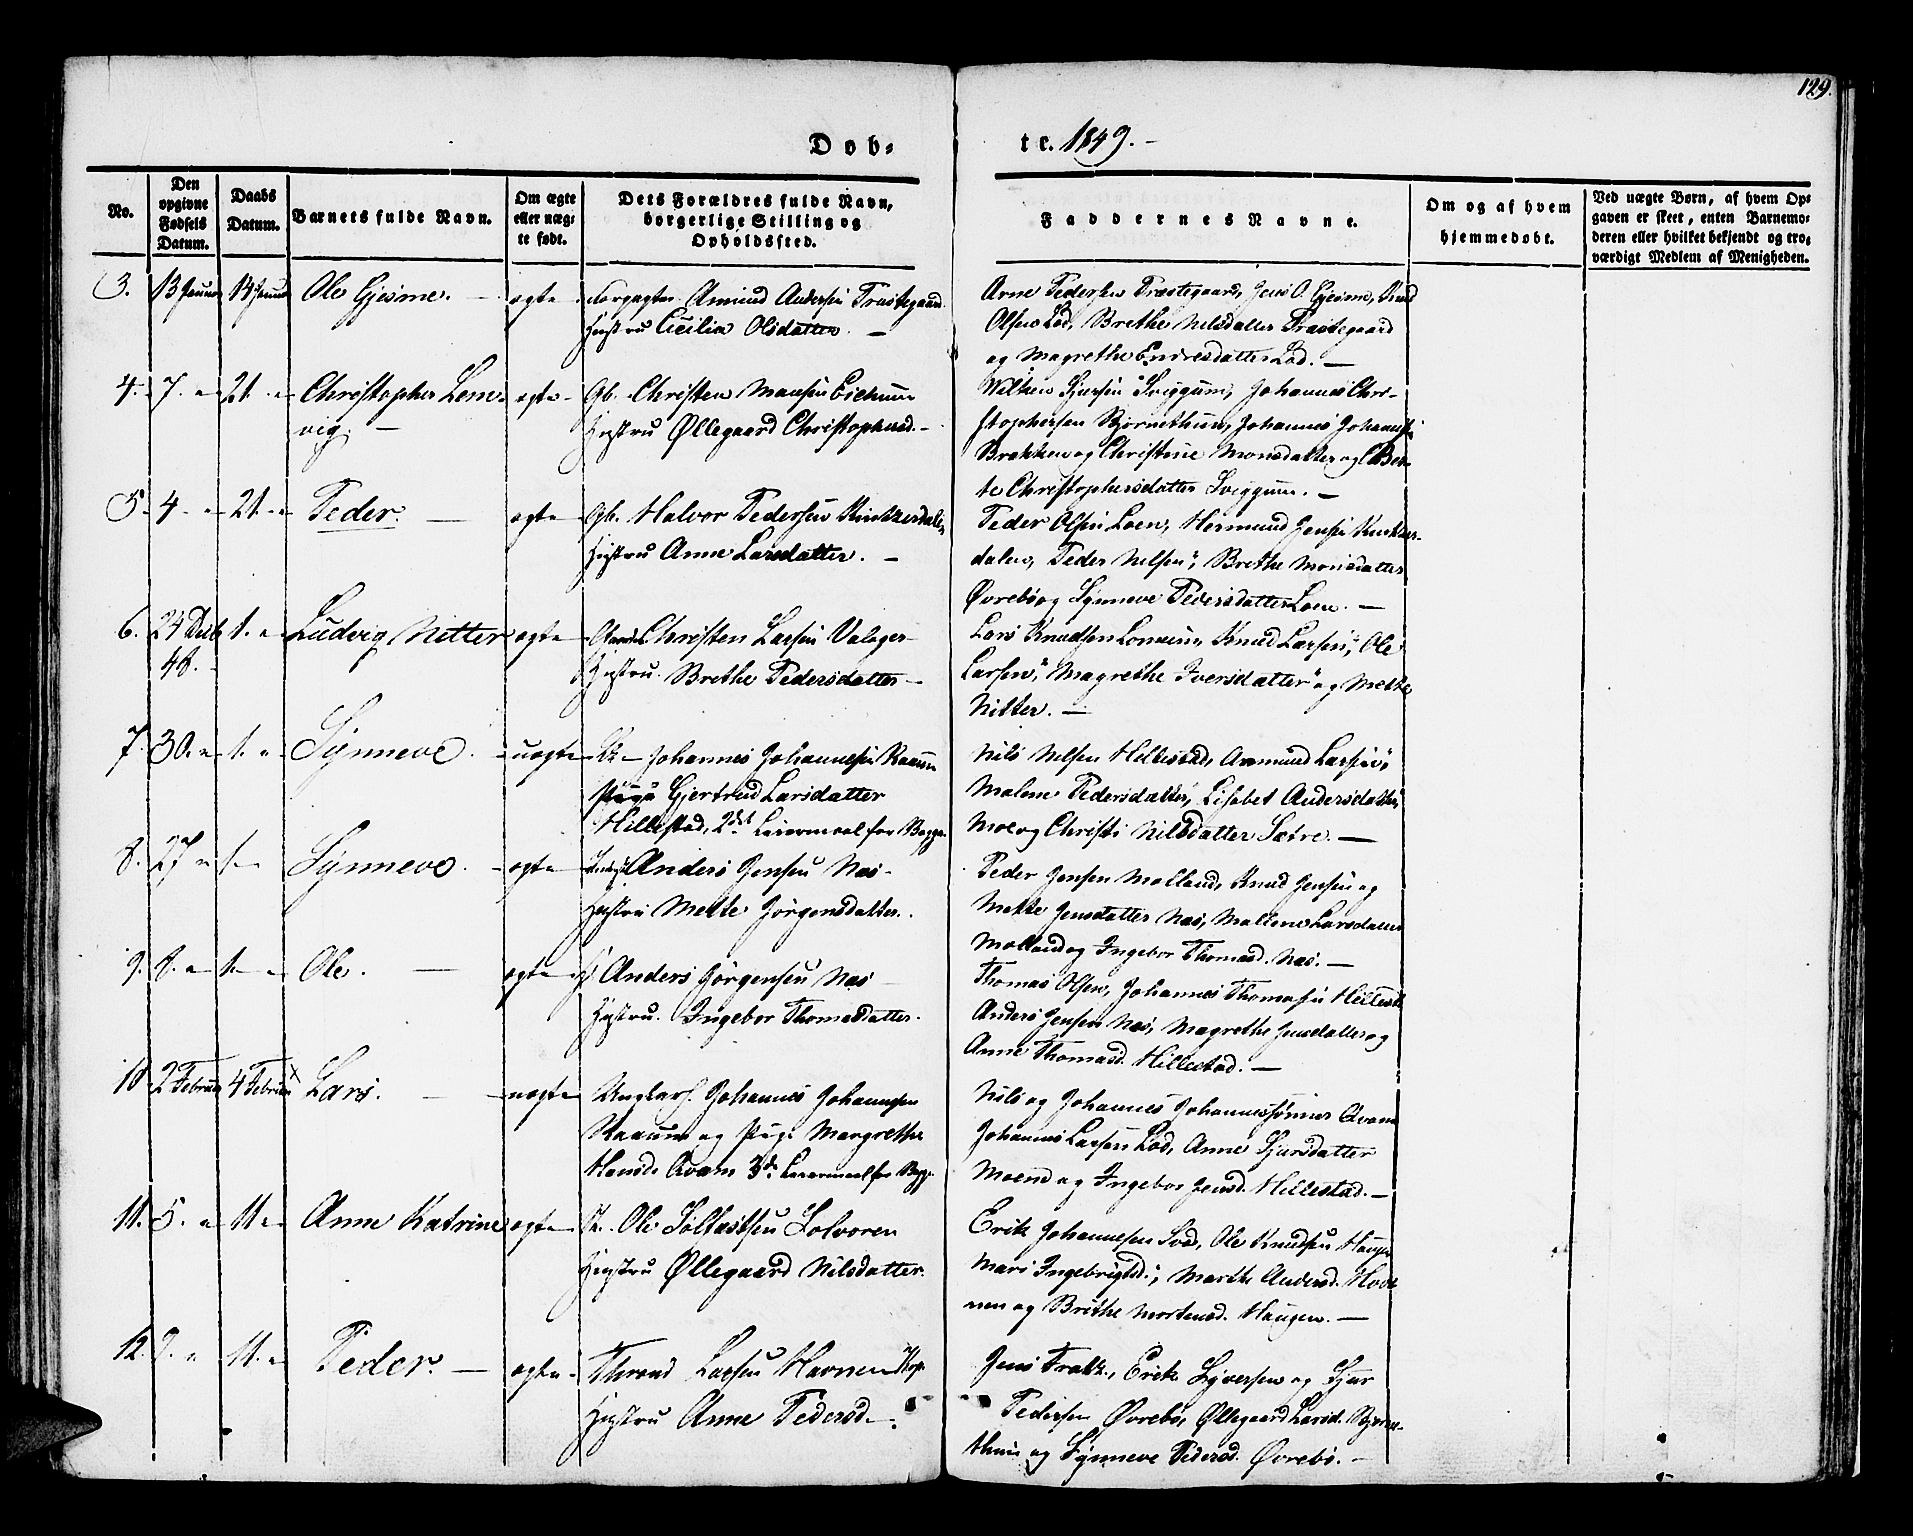 129.
Døb-
te. 1849. -
No.
Den opgivne Fødsels Datum.
Daabs Datum.
Barnets fulde Navn.
Om ægte eller uæg- te født.
Dets Forældres fulde Navn, borgerlige Stilling og Opholdssted.
Faddernes Navne.
Om og af hvem hjemmedøbt.
Ved uægte Børn, af hvem Op- gaven er skeet, enten Barnemo- deren eller hvilket bekjendt og tro- værdigt Medlem af Menigheden.
3. 13 Januar 14 Januar Ole Gjesme. - ægte Amund Andersen Præstegaard
Hustru Cicilia Olsdatter. -
Arne Pedersen Præstegaard, Jens O. Gjesme, Knud
Olsen Lød, Brethe Nilsdatter Præstegaard
og Magrethe Endresdatter Lød. -
4. 7. - 21. - Christopher Lem- ægte - Gb. Christen Monsen Eichum
vig. - Hustru Øllegaard Christophersd. -
Wilken Sjursen Sviggum, Johannes Chri-
stophersen Bjørnethun, Johannes Johannesen
Brekken og Christine Monsdatter og Bri-
te Christophersdatter Sviggum. -
5. 4 - 21. - Peder. - ægte Gb. Halvor Pedersen Kinkerdalen
Hustru Anne Larsdatter. -
Peder Olsen Loen, Hermund Jensen Kinker-
dalen, Peder Nilsen, Brethe Monsdatter
Øvrebø og Synneve Pedersdatter Loen. -
6. 24 Decb 1. - Ludvig Nitter ægte Christen Larsen Valager -
48. - Hustru Brethe Pedersdatter -
Lars Knudsen Lomen, Knud Larsen, Ole
Larsen, Magrethe Iversdatter og Mette
Nitter. -
7. 30. - 1. - Synneve. - uægte Johannes Johannesen Raaum
Pige Gjertrud Larsdatter
Hillestad, 2det Leiermaal for Begge.
Nils Nilsen Hillestad, Aamund Larsen,
Malene Pedersdatter, Lisabet Andersdatter
Moe og Christi Nilsdatter Sætre. -
8. 27 - 1 - Synneve. - ægte Anders Jensen Næs -
Hustru Mette Jørgensdatter.
Peder Jensen Molland, Knud Jensen og
Mette Jensdatter Næs, Malene Larsdatter
Molland og Ingebor Thomasd. Næs. -
9. 8. - 1. - Ole. - ægte Anders Jørgensen Næs
Hustru. Ingebor Thomasdatter.
Thomas Olsen, Johannes Thomasen Hillest.
Anders Jensen Næs, Magrethe Jensdatter og
Anne Thomasd. Hillestad. -
10 2 Februar 4 Februar Lars. - uægte Ungkarl. Johannes Johannesen
Raaum og Pige Margrethe
Hansd. Qvam 3de Leiermaal for Begge
Nils og Johannes Johannessønner Qvam
Johannes Larsen Lød, Anne Sjursdatter
Moen og Ingebor Jensd. Hillestad. -
11. 5. - 11 - Anne Katrine ægte Ole Solfæstsen Solvoren
Hustru Øllegaard Nilsdatter.
Erik Johannesen Svæ, Ole Knudsen Haugen
Mari Ingebrigtsd., Marthe Andersd. Hov-
nen og Brithe Mortensd. Haugen. -
12. 9. - 11. - Peder. - ægte - Thrond Larsen Havnen
Hustru Anne Pedersd.
Jens Erik Syversen og Sjur
Pedersen Øvrebø, Øllegaard Larsd. Bjørne-
thun og Synneve Pedersd. Øvrebø. -